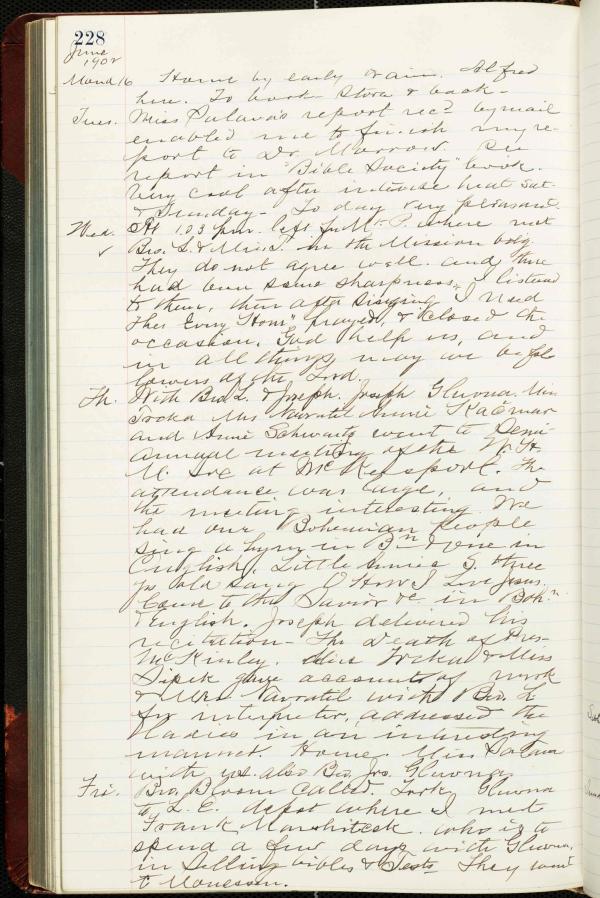 228
June
1902
Mond 16 Home by early train. Alfred
here. To book store & back -
Tues. Miss Palava's report recd by mail
enabled me to finish my re-
port to Dr. Morrow. See
report in "Bible Society" book.
Very cool after intense heat Sat-
& Sunday - To day very pleasant
Wed. At 1.03 p.m. left for Mt. P. where met
Bro. L. & Miss T. in the Mission bldg.
They do not agree well. and there
had been some sharpness, I listened
to them, then after singing "I Need
Thee Every Hour" prayed, & closed the
occasion. God help us, and
in all things may we be fol
lowers of the Lord.
Th. With Bro L. & Joseph. Joseph Gluvna. Miss
Trcka Mrs Navratil Annie Kačmar
and Annie Schwartz went to Semi
annual meeting of the W. H.
M. Soc at McKeesport. The
attendance was large, and
the meeting interesting. We
had our Bohemian people
sing a hymn in Bn & one in
English. Little Annie S. three
yrs old sang O How I Love Jesus.
Come to the Savior &c in Bohn
& English. Joseph delivered his
recitation - The Death of Pres-
McKinley. Miss Trcka & Miss
Sipek gave accounts of work
& Mrs Navratil with Bro. L.
for interpreter, addressed the
Ladies in an interesting
manner. Home. Miss Palava
with us. also Bro. Jos. Gluvna
Fri. Bro. Bloom called. Took Gluvna
to L. E. depot where I met
Frank who is to
spend a few days with Gluvna,
in selling bibles & Tests They went
to Monessen.